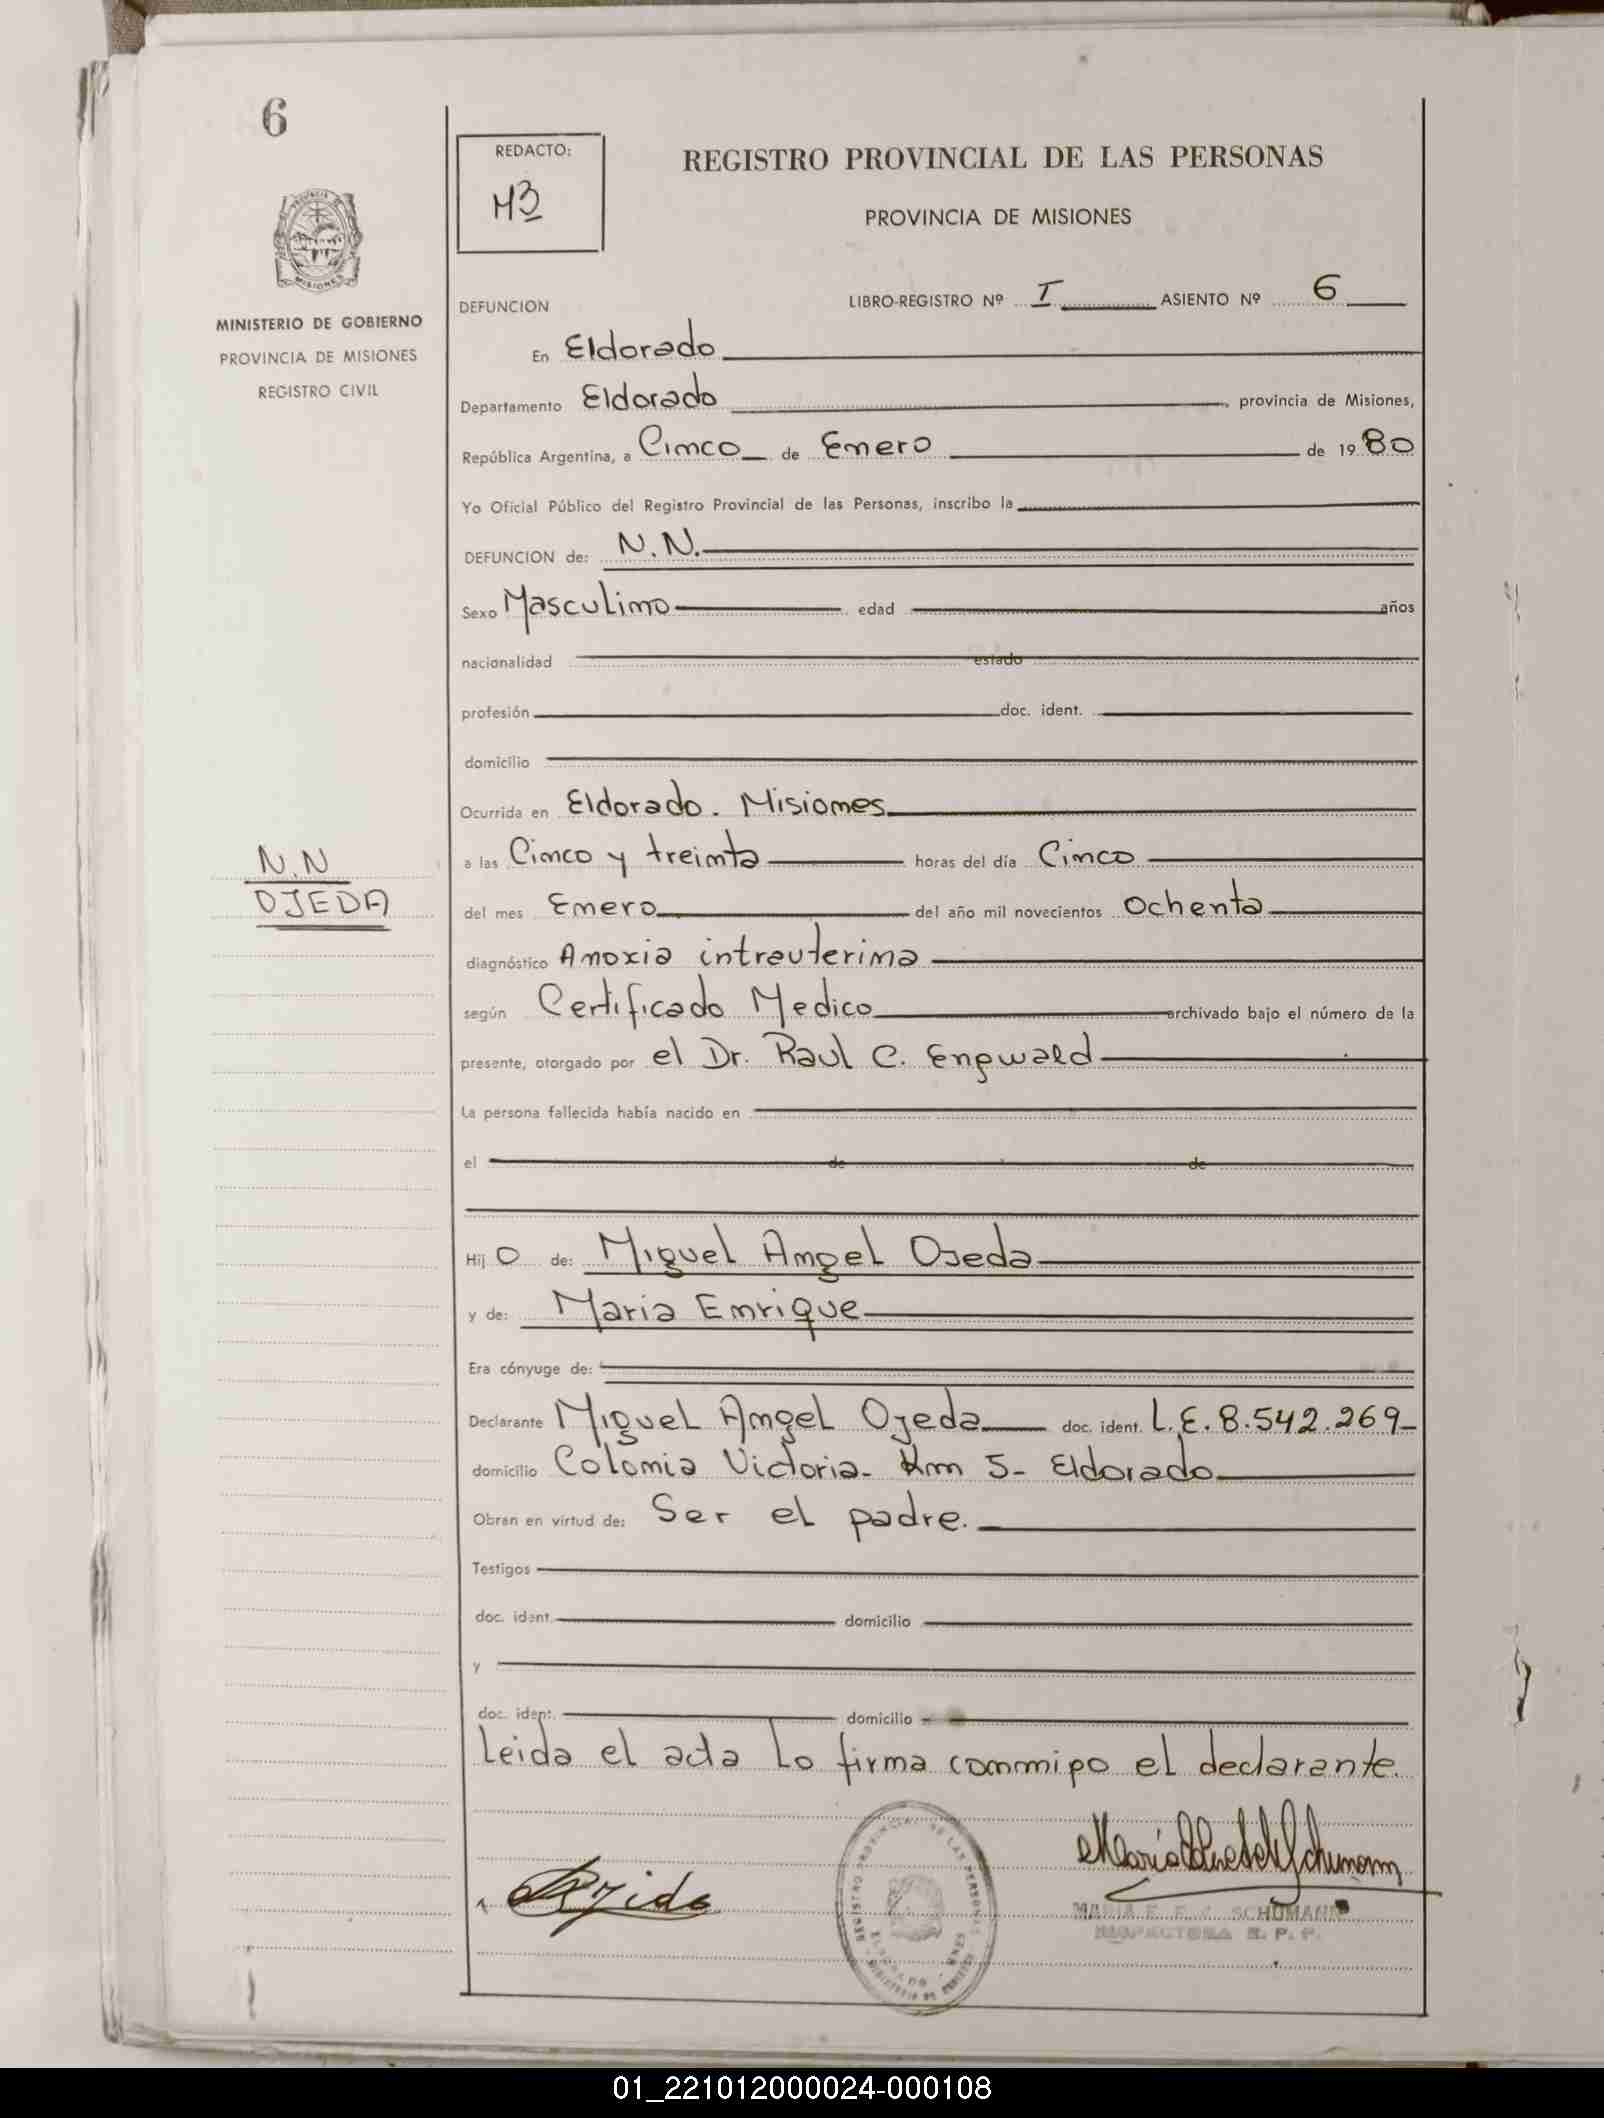 6
REDACTO:
REGISTRO PROVINCIAL DE LAS PERSONAS
PROVINCIA DE MISIONES
MINISTERIO DE GOBIERNO
PROVINCIA DE MISIONES
REGISTRO CIVIL
DEFUNCION
LIBRO-REGISTRO Nº I ASIENTO Nº 6
En Eldorado
Departamento Eldorado, provincia de Misiones,
República Argentina, a Cinco de Enero de 1980
Yo Oficial Público del Registro Provincial de las Personas, inscribo la
DEFUNCION de: N.N.
Sexo Masculino edad años
nacionalidad estado
profesión doc. ident.
domicilio
Ocurrida en Eldorado. Misiones
N.N
OJEDA
a las Cinco y treinta horas del día Cinco
del mes Enero del año mil novecientos Ochenta
diagnóstico Anoxia intrauterina
según Certificado Medico archivado bajo el número de la
presente, otorgado por el Dr. Raul C. Engwald
La persona fallecida había nacido en
el de de
Hij o de: Miguel Angel Ojeda
y de: Maria Enrique
Era cónyuge de:
Declarante Miguel Angel Ojeda doc. ident. L.E. 8.542.269-
domicilio Colonia Victoria- Km 5- Eldorado
Obran en virtud de: Ser el padre.
Testigos
doc. ident. domicilio
y
doc. ident. domicilio
Leida el acta Lo firma conmigo el declarante.
SCHUMANN
INSPECTORA R. P. P.
01_221012000024-000108